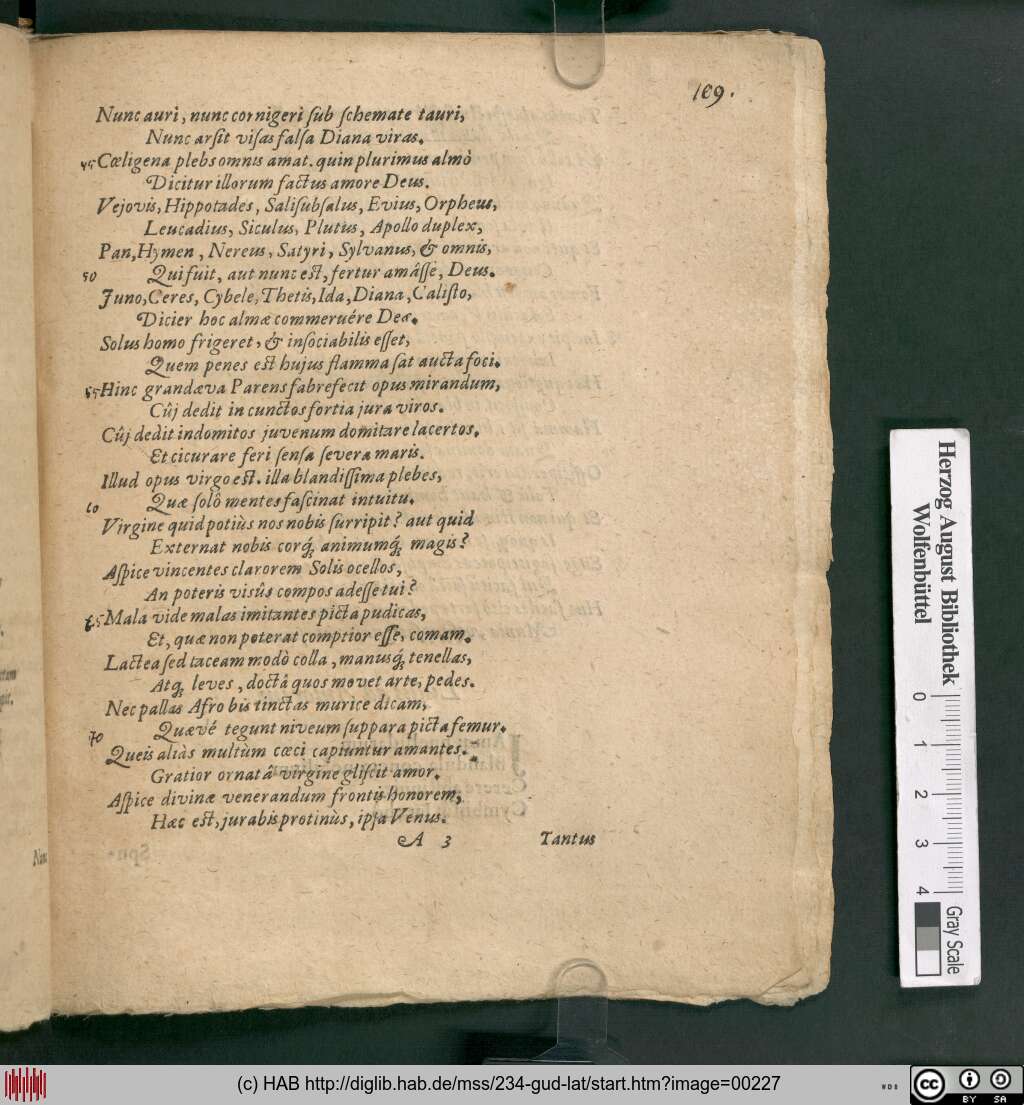 189.
Nunc auri, nunc cornigeri ſub ſchemate tauri,
Nunc arſit viſas falſa Diana viras.
45 Cœligena plebs omnis amat. quin plurimus almò
Dicitur illorum factus amore Deus.
Vejovis, Hippotades, Saliſubſalus, Evius, Orpheus,
Leucadius, Siculus, Plutus, Apollo duplex,
Pan, Hymen, Nereus, Satyri, Sylvanus, & omnis,
50 Qui fuit, aut nunc eſt, fertur amâſſe, Deus.
Juno, Ceres, Cybele, Thetis, Ida, Diana, Caliſto,
Dicier hoc almæ commeruére Deæ.
Solus homo frigeret, & inſociabilis eſſet,
Quem penes eſt hujus flamma ſat aucta foci.
55 Hinc grandæva Parens fabrefecit opus mirandum,
Cûj dedit in cunctos fortia jura viros.
Cûj dedit indomitos juvenum domitare lacertos.
Et cicurare feri ſenſa ſevera maris.
Illud opus virgo eſt. illa blandiſſima plebes,
60 Quæ ſolô mentes faſcinat intuitu.
Virgine quid potiùs nos nobis ſurripit? aut quid
Externat nobis corq́; animumq́; magis?
Aſpice vincentes clarorem Solis ocellos,
An poteris visûs compos adeſſe tui?
65 Mala vide malas imitantes picta pudicas,
Et, quæ non poterat comptior eſſe, comam.
Lactea ſed taceam modò colla, manusq́; tenellas,
Atq; leves, doctâ quos movet arte, pedes.
Nec pallas Afro bis tinctas murice dicam,
70 Quævé tegunt niveum ſuppara picta femur.
Queis aliàs multùm cœci capiuntur amantes.
Gratior ornatâ virgine gliſcit amor.
Aſpice divinæ venerandum frontis honorem,
Hæc eſt, jurabis protinùs, ipſa Venus.
A 3 Tantus
Herzog August Bibliothek
Wolfenbüttel
0 1 2 3 4
Gray Scale
(c) HAB http://diglib.hab.de/mss/234-gud-lat/start.htm?image=00227
WDB
cc BY SA